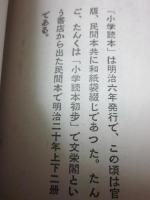 「小学読本」は明治六年発行で、この頃は官
版、民間本共に和紙袋綴じであつた。たん
ご、たんくは「小学読本初歩」で文栄閣とい
う書店から出た民間本で明治二十年上下二冊
である。